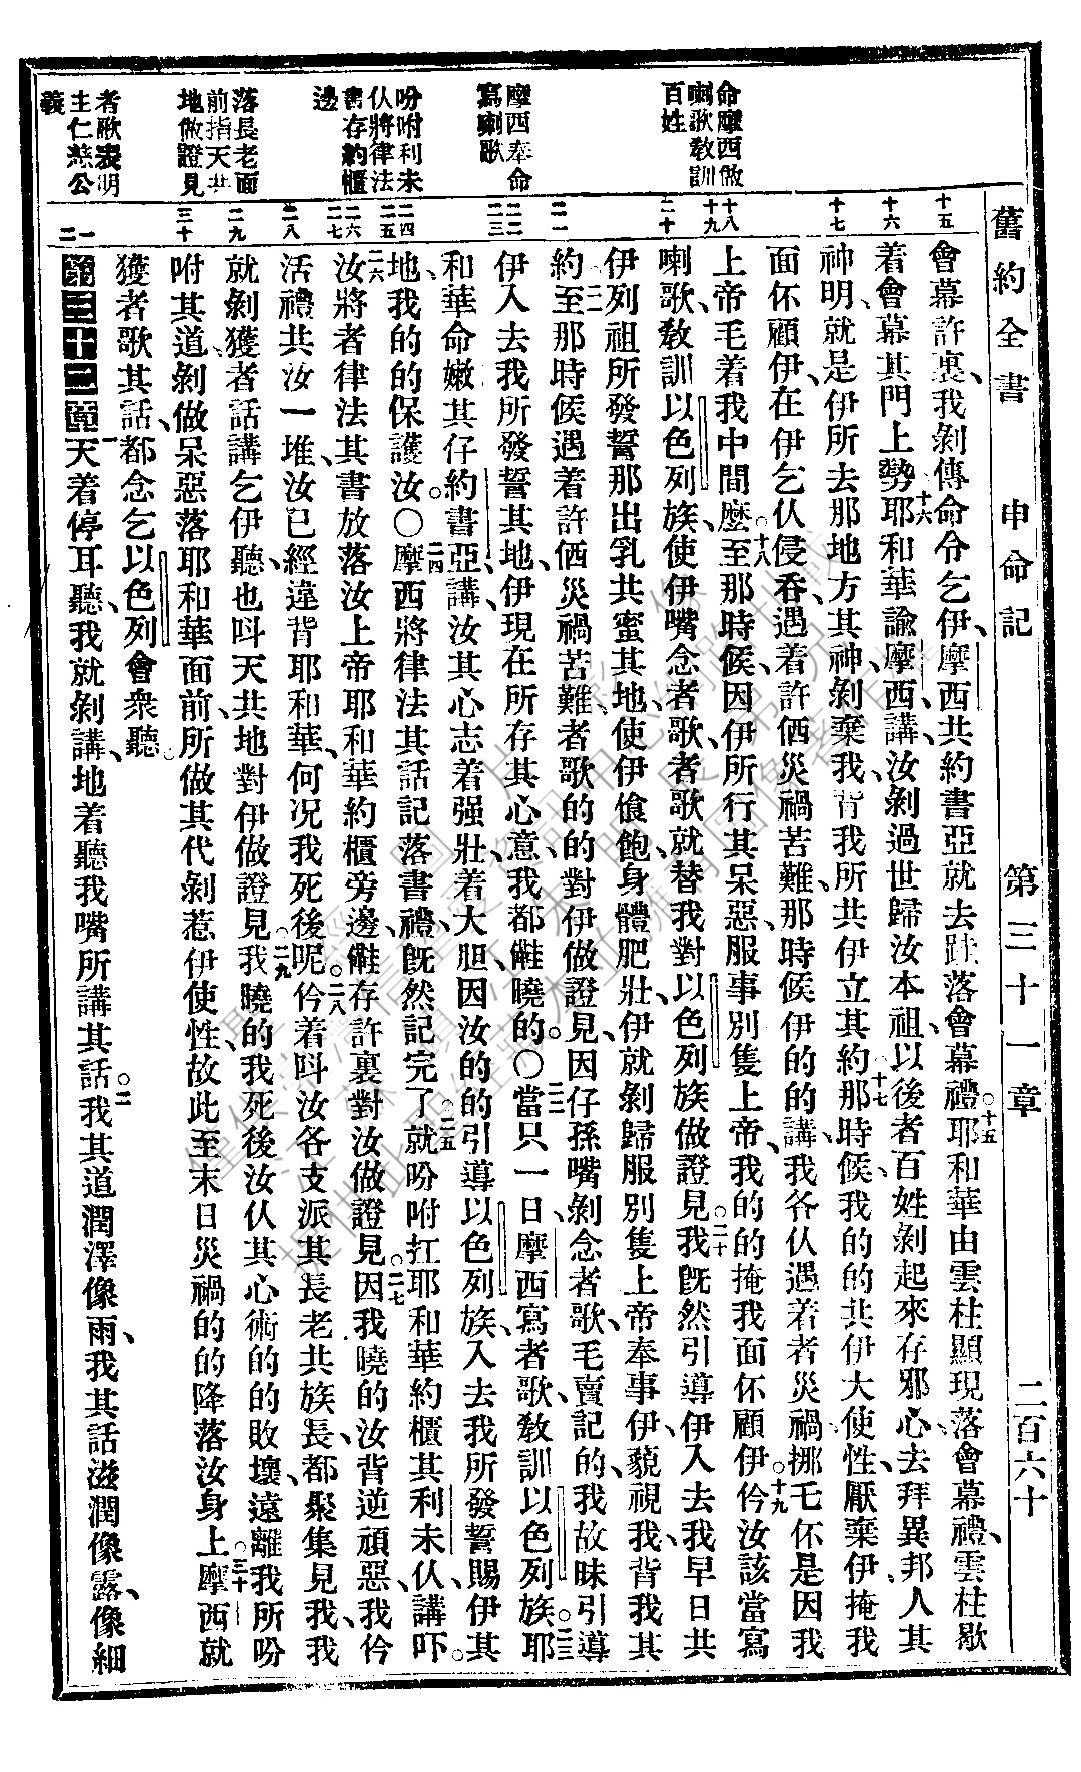 舊約全書 申命記 第三十一章 二百六十
命摩西做
喇歌敎訓
百姓
摩西奉命
寫喇歌
吩咐利未
仈將律法
書存約櫃
邊
落長老面
前指天共
地做證見
者歌表明
主仁慈公
義
十五
十六
十七
十八
十九
二十
二一
二二
二三
二四
二五
二六
二七
二八
二九
三十
一
二
會幕許裏、我剝傳命令乞伊、摩西共約書亞就去跍落會幕禮。十五耶和華由雲柱顯現落會幕禮、雲柱歇
着會幕其門上勢、十六耶和華諭摩西講、汝剝過世歸汝本祖、以後者百姓剝起來存邪心、去拜異邦人其
神明、就是伊所去那地方其神、剝棄我、背我所共伊立其約、十七那時候、我的的共伊大使性、厭棄伊、掩我
面伓顧伊、在伊乞仈侵吞、遇着許価災禍苦難、那時候伊的的講、我各仈遇着者災禍、挪乇伓是因我
上帝毛着我中間麽。十八至那時候、因伊所行其呆惡、服事別隻上帝、我的的掩我面伓顧伊。十九仱汝該當寫
喇歌、敎訓以色列族、使伊嘴念者歌、者歌就替我對以色列族做證見。二十我旣然引導伊入去我早日共
伊列祖所發誓那出乳共蜜其地、使伊飡飽、身體肥壯、伊就剝歸服別隻上帝奉事伊、藐視我、背我其
約。二一至那時候遇着許価災禍苦難、者歌的的對伊做證見、因仔孫嘴剝念者歌、毛賣記的、我故昧引導
伊入去我所發誓其地、伊現在所存其心意、我都儺曉的。〇二二當只一日、摩西寫者歌、敎訓以色列族。二三耶
和華命嫩其仔約書亞講、汝其心志着强壯、着大胆、因汝的的引導以色列族、入去我所發誓賜伊其
地、我的的保護汝。〇二四摩西將律法其話記落書禮、旣然記完了、二五就吩咐扛耶和華約櫃其利未仈講、
二六汝將者律法其書、放落汝上帝耶和華約櫃旁邊、儺存許裏對汝做證見。二七因我曉的汝背逆頑惡、我仱
活禮共汝一堆、汝已經違背耶和華、何况我死後呢。二八仱着呌汝各支派其長老共族長、都聚集見我、我
就剝獲者話講乞伊聽、也呌天共地對伊做證見。二九我曉的我死後汝仈其心術的的敗壞、遠離我所吩
咐其道、剝做呆惡落耶和華面前、所做其代剝惹伊使性、故此至末日災禍的的降落汝身上。三十摩西就
獲者歌其話、都念乞以色列會衆聽。
第三十二章 一天着停耳聽、我就剝講、地着聽我嘴所講其話。二我其道潤澤像雨、我其話滋潤像露、像細